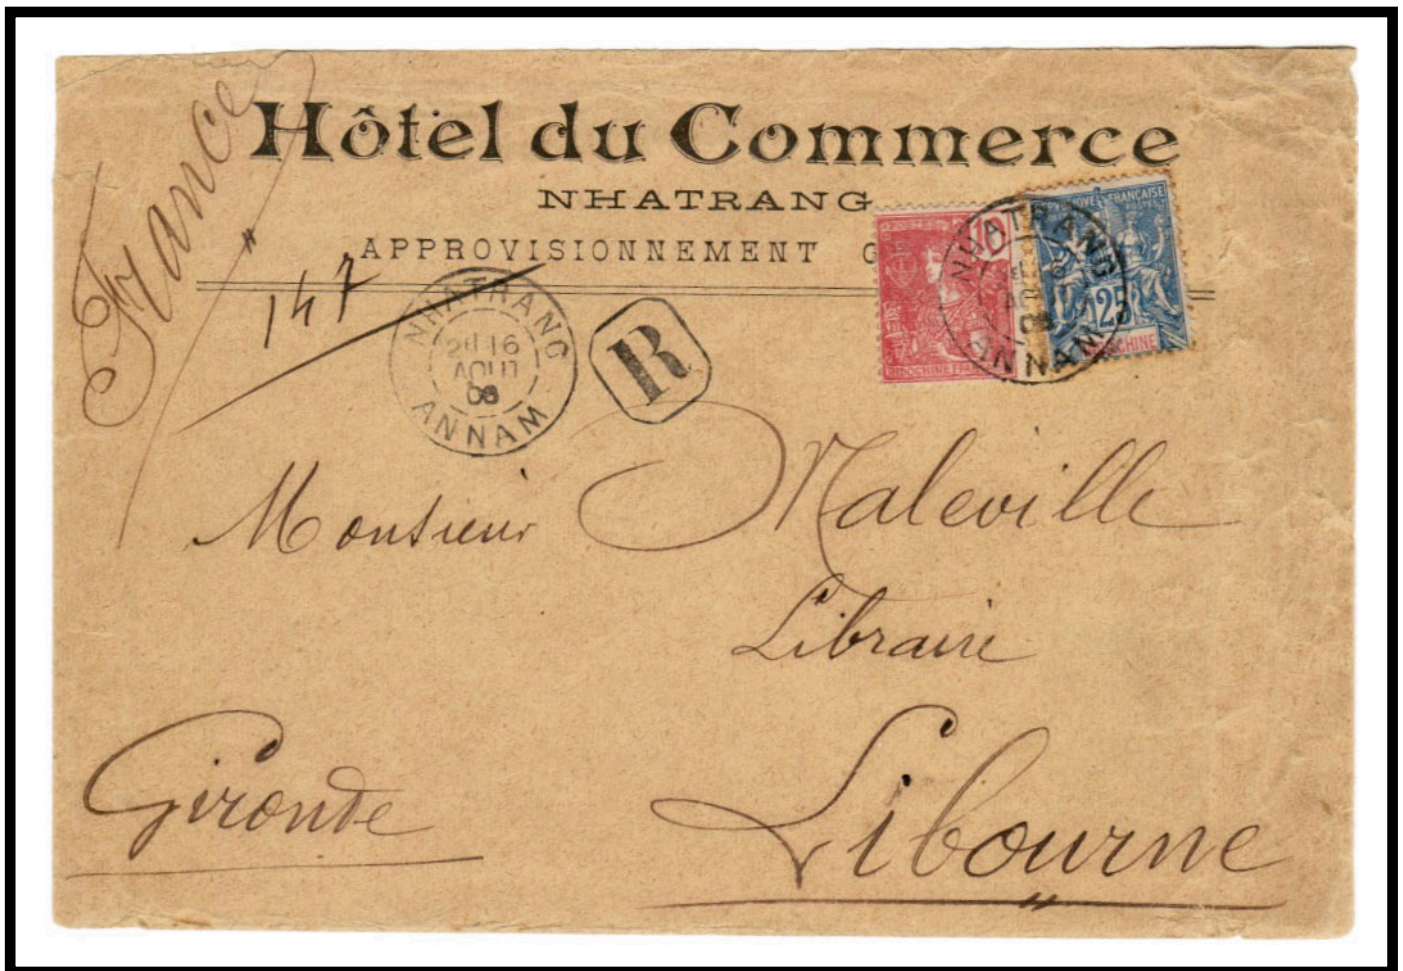 France
Hôtel du Commerce
NHATRANG
APPROVISIONNEMENT G
147
NHATRANG
16
AOUT
08
ANNAM
R
10
POSTES
INDOCHINE FRA
NHATRANG
ANNAM
FRANÇAISE
25
CHINE
Monsieur Maleville
Libraire
Gironde
Libourne